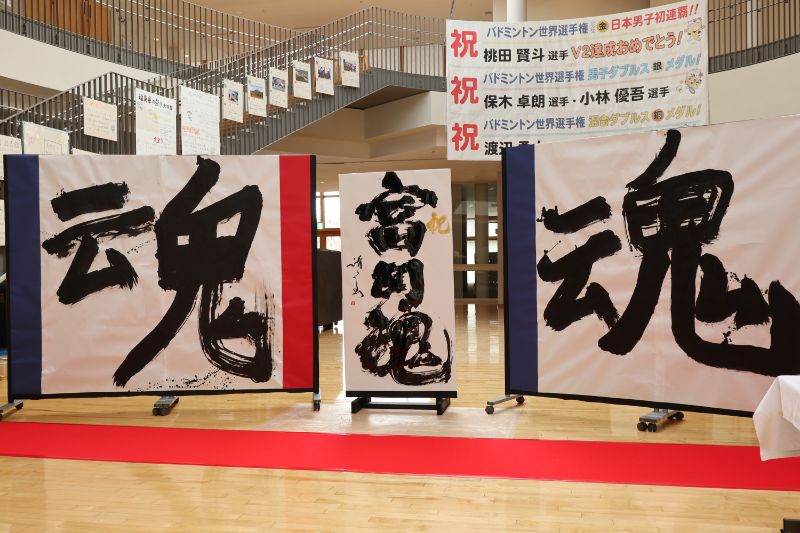 祝 バドミントン世界選手権 金 日本男子初連覇!!
桃田 賢斗 選手 V2達成おめでとう!
祝 バドミントン世界選手権 男子ダブルス 銀 メダル!
保木 卓朗 選手・小林 優吾 選手
祝 バドミントン世界選手権 混合ダブルス 銅 メダル!
渡辺
魂
祝
富岡魂
魂